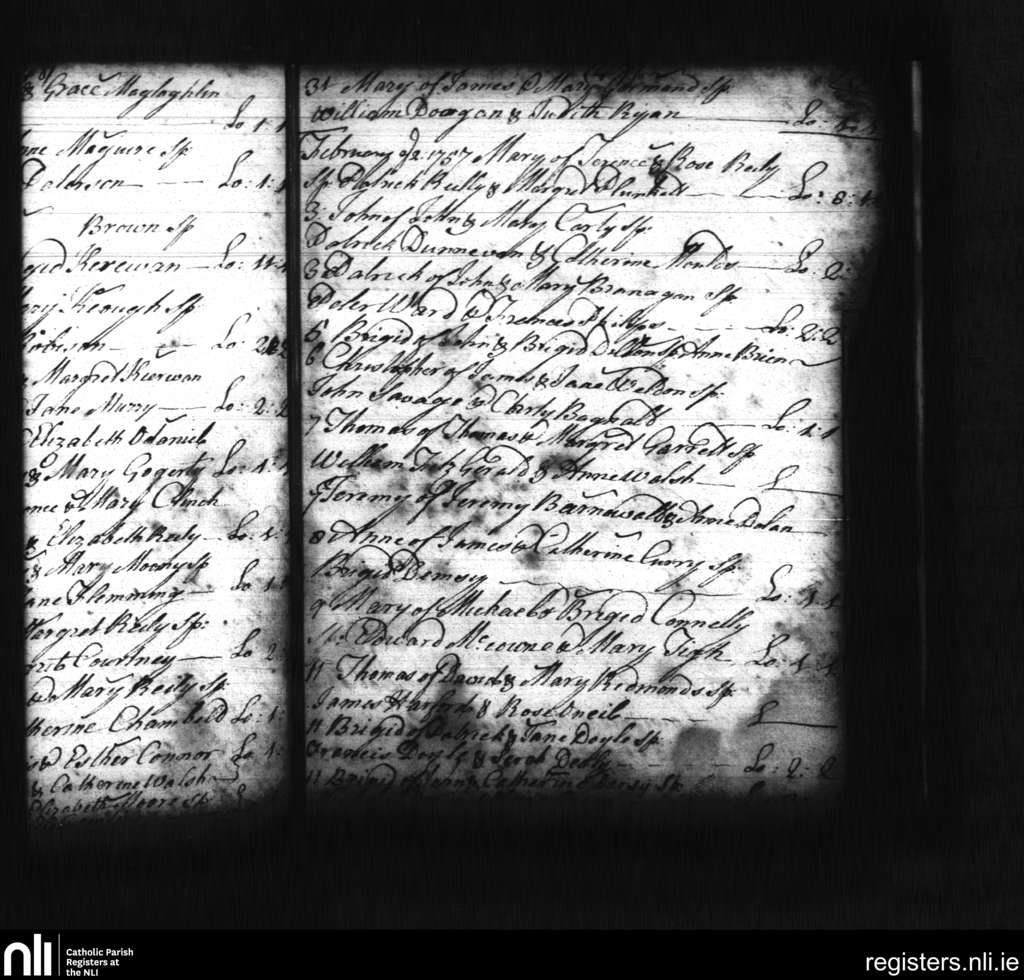 & Grace Maglaghlin
Lo 1: 1
Maguire Sp
Paterson — Lo: 1: 1
Brown Sp
Kerewan — Lo: 11:
Keough Sp
Robison — Lo: 2: 2
Margret Kierwan
Jane Murry — Lo: 2: 2
Elizabeth Odaniel
& Mary Gogerty Lo: 1: 1
& Mary Clinch
& Elizabeth Reily — Lo: 1:
& Mary Moony Sp
Jane Flemming — Lo 1:
Margret Reily Sp:
Courtney — Lo 2
& Mary Reily Sp
Chambeld Lo: 1:
& Esther Connor Lo 1:
& Catherine Walsh
Elizabeth Moore Sp
31 Mary of James & Mary Sp
William Doogan & Judith Ryan — Lo: 1: 1
February ye 2: 1757 Mary of Terence & Rose Reily
Sp Patrick Reilly & Margret Plunkett — Lo: 8: 1
3: John of John & Mary Carty Sp:
Patrick Dunnevan & Catherine — Lo: 2:
3 Patrick of John & Mary Branagan Sp
Peter Ward & Frances — Lo: 2: 2
5 Brigid of John & Brigid Dillon Sp Anne Brien
6 Christopher of James & Jane Weldon Sp:
John Savage & Christy Bagnald — Lo: 1: 1
7 Thomas of Thomas & Margret Garrett Sp
William Fitz Gerald & Anne Walsh — L
7 Jeremy of Jeremy Barnawall & Anne Dolan
8 Anne of James & Catherine Curry Sp
Brigid Demsy — Lo: 1: 1
9 Mary of Michael & Briged Connelly
Edward Mccowne & Mary Tigh Lo: 1: 1
11 Thomas of David & Mary Redmonds Sp:
James Harford & Rose Oneil — L
11 Brigid of Patrick & Jane Doyle Sp
Francis Doyle & Sarah — Lo: 2: 2
11 Brigid of John & Catherin Sp
nli
Catholic Parish
Registers at
the NLI
registers.nli.ie